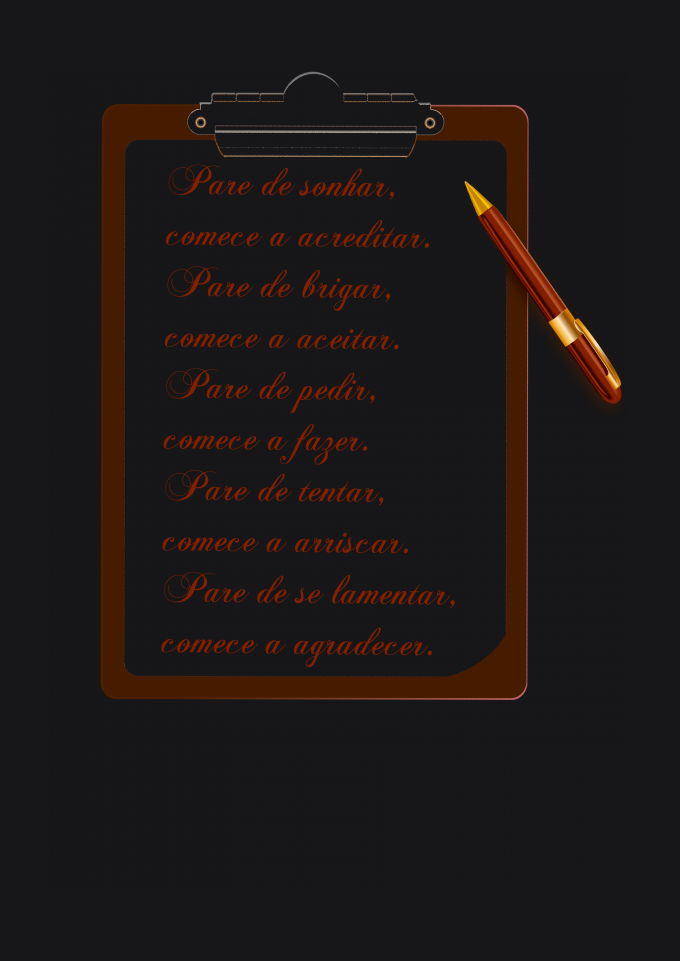 Pare de sonhar,
comece a acreditar.
Pare de brigar,
comece a aceitar.
Pare de pedir,
comece a fazer.
Pare de tentar,
comece a arriscar.
Pare de se lamentar,
comece a agradecer.